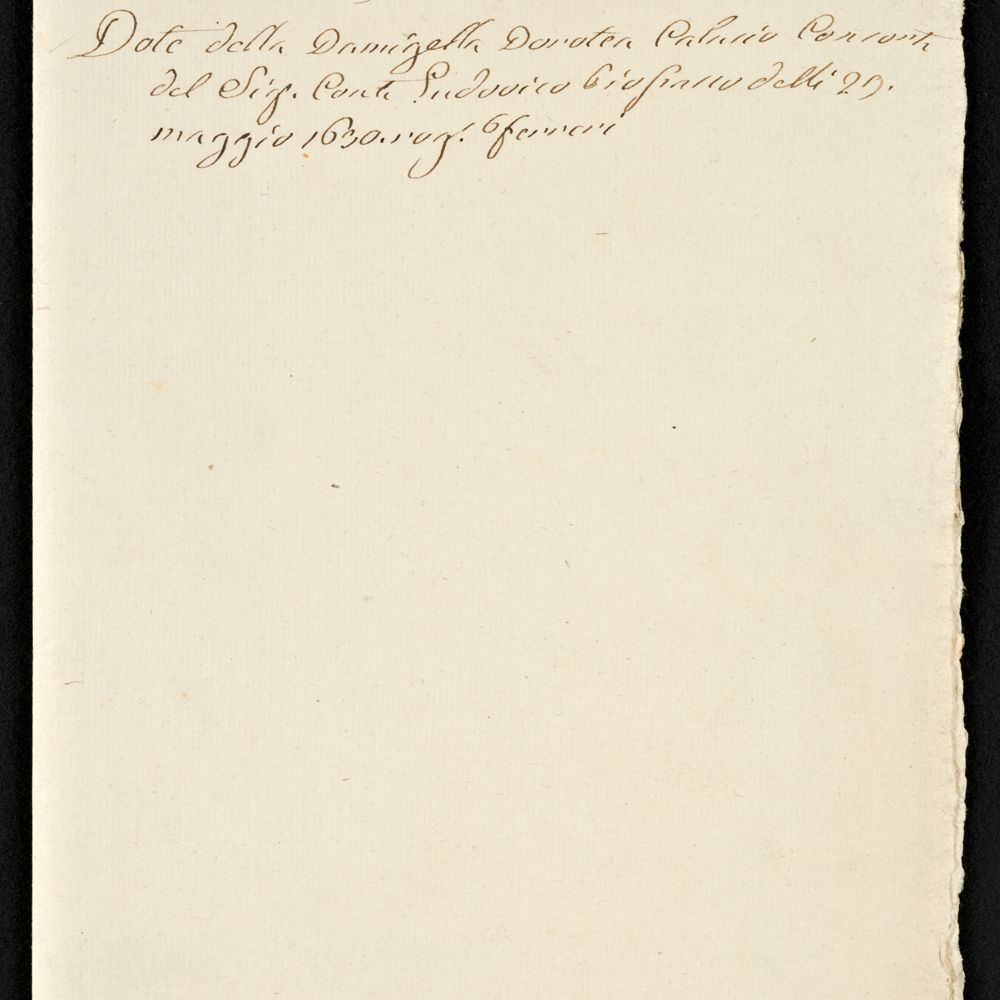 Dote della Damigella Dorotea Consorte
del Sig. Conte Ludovico delli 29.
maggio 1630. rog. Ferrari